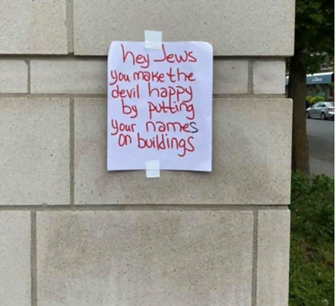 hey Jews
you make the
devil happy
by putting
your names
on buildings